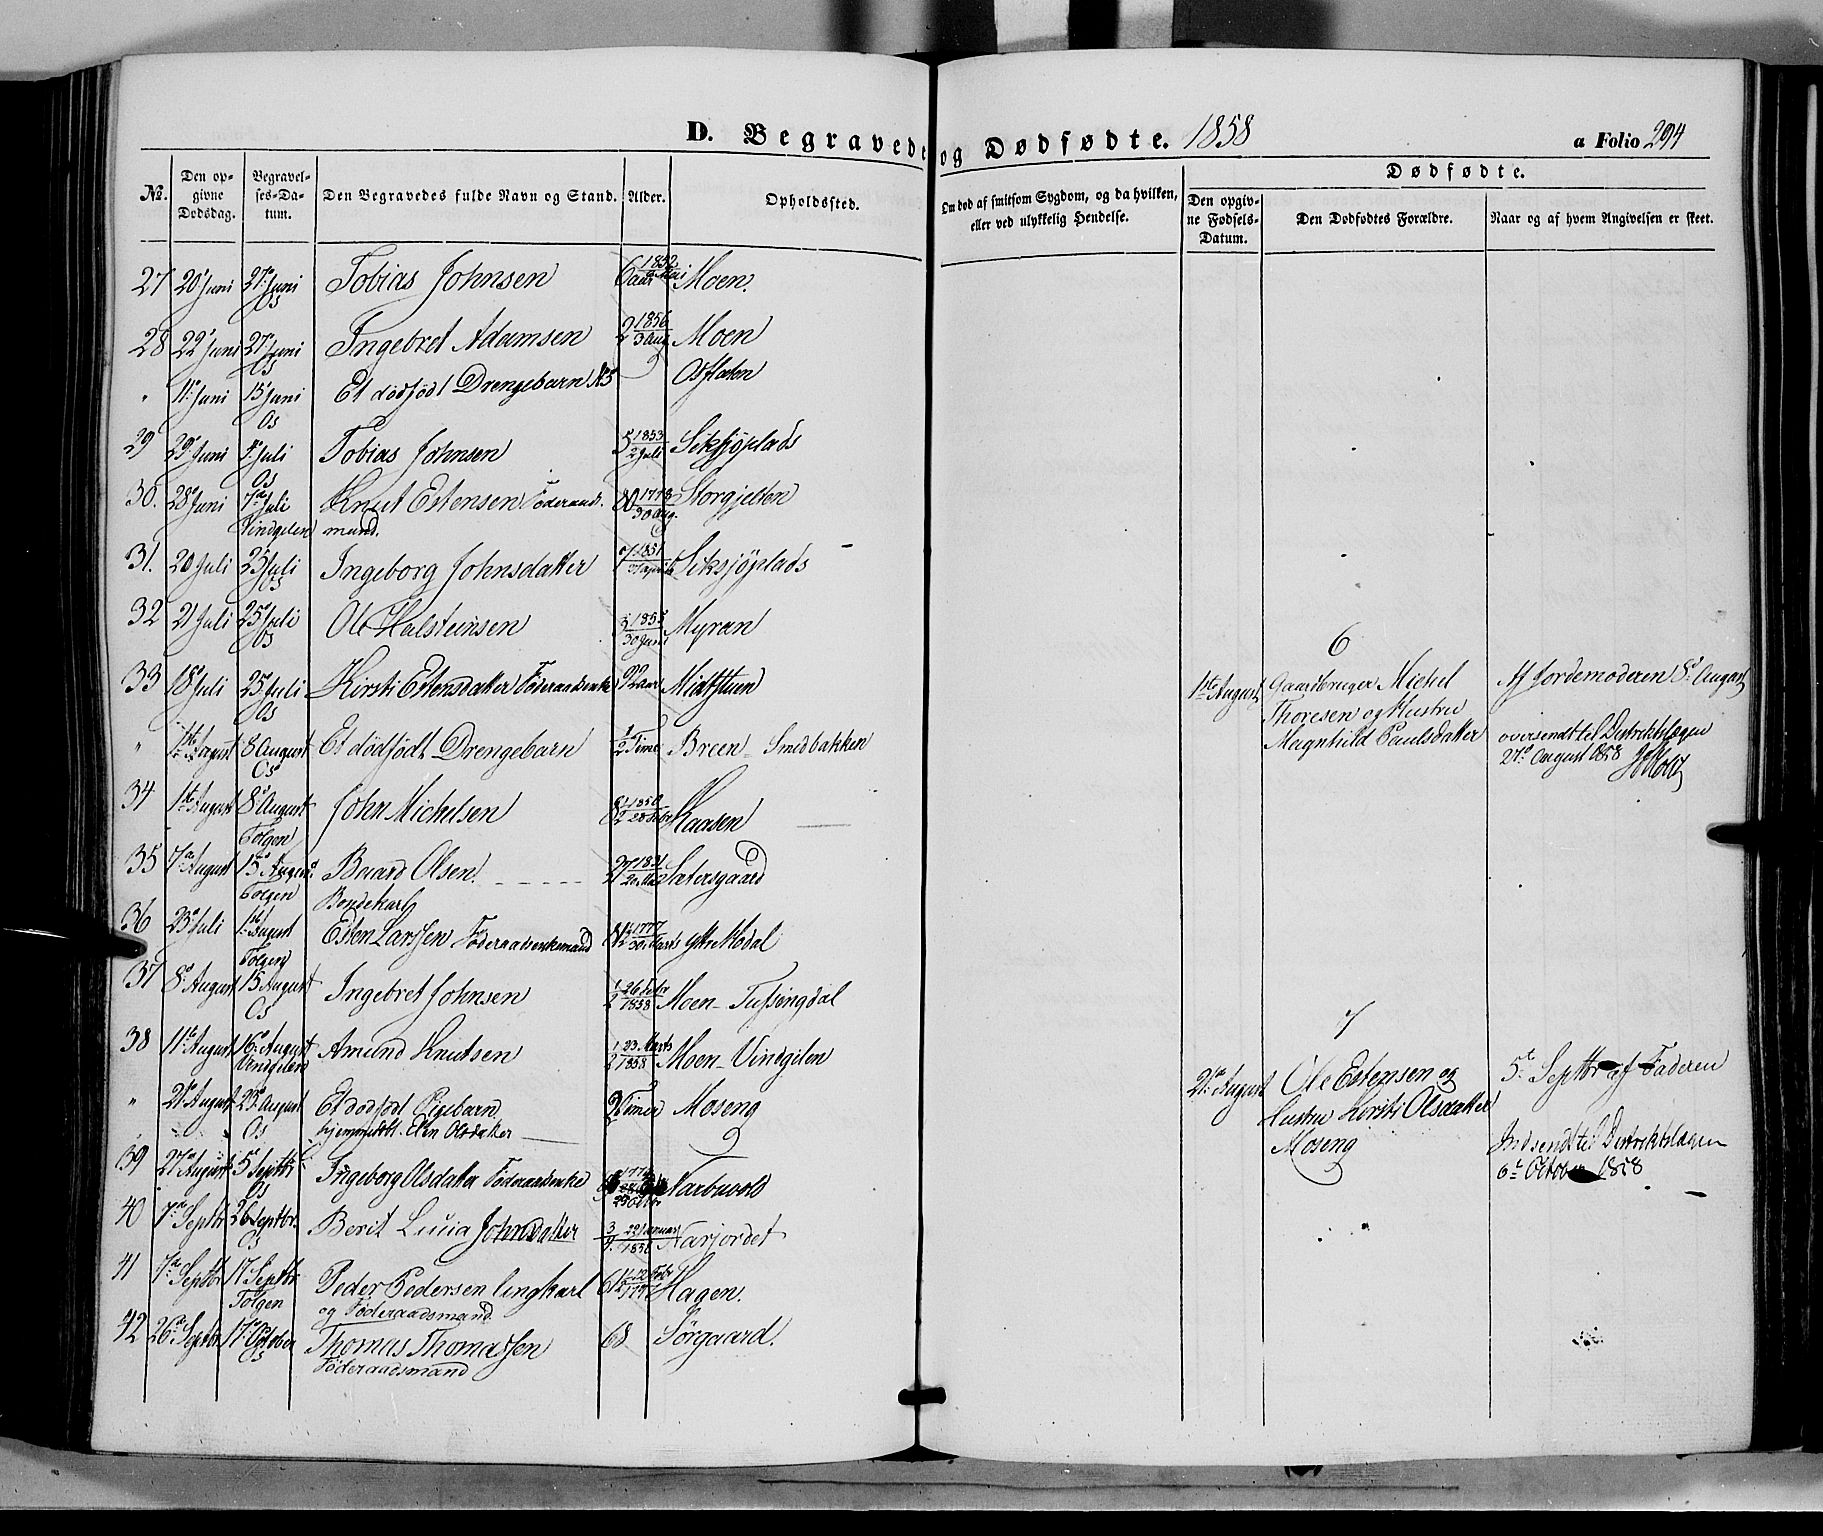 D. Begravede og Dødfødte. 1858
a Folio 294
No. Den opgivne Dødsdag. Begravelses-Datum. Den Begravedes fulde Navn og Stand. Alder. Opholdssted. Om død af smitsom Sygdom, og da hvilken, eller ved ulykkelig Hendelse.
Dødfødte.
Den opgivne Fødsels-Datum. Den Dødfødtes Forældre. Naar og af hvem Angivelsen er skeet.
27 20 Juni 27 Juni Os Tobias Johnsen 6 aar 1852 Mai Moen.
28 22 Juni 27 Juni Os Ingebret Adamsen 2 1856 3 Aug Moen
" 11 Juni 13 Juni Os Et dödfödt Drengebarn No 5 Osfloten
29 29 Juni Juli Os Tobias Johnsen 5 1853 2 Juli Siksjöplads
30. 28 Juni 7de Juli Vindgelen Knut Estensen Föderaads-
mand. 80 1778 30 Aug. Storgjelten
31. 20 Juli 25 Juli Os Ingeborg Johnsdatter 7 1851 Siksjöplads
32 21 Juli 25 Juli Os Ole Halsteinsen 3 1855 30 Juni Myran
33 18 Juli 25 Juli Os Kirsti Estensdatter Föderaadsenke 92 aar Midtstuen
" 1ste August 8 August Os Et dödfödt Drengebarn 1/2 Time Breen - Smedbakken
6
1ste August Gaardbruger Michel
Thoresen og Hustru
Magnhild Paulsdatter
Af Jordemoderen 8de August
oversendt til Distriktslægen
27de August 1858
34 1ste August 8 August Tolgen John Michelsen 8 1/2 1850 28 Febr Kaasen
35 7de August 15 August Tolgen Baard Olsen.
Bondekarl 27 1831 20 Mai Sætersgaard
36 23 Juli 1ste August Tolgen Esten Larssen Föderaadsenkemand 81 1/2 1777 30 Marts ytre Hodal
37 8 August 15 August Os Ingebret Johnsen 1/2 26 Febr 1858 Moen - Tufsingdal
38 11te August 16 August Vindgelen Amund Knutsen 1/2 23 Marts 1858 Moen - Vindgelen
" 21de August 29 August Os Et dödfödt Pigebarn
hjemmedöbt. Elen Olsdatter 2 Timer Moseng
7
21de August Ole Estensen og
Hustru Berit Olsdatter
Moseng
5te Septbr af Faderen
Indsendt til Distriktslægen
6te October 1858
39 27de August 5 Septbr Os Ingeborg Olsdatter Föderaadsenke Narbuvold
40 7de Septbr 26 Septbr. Os Berit Lucia Johnsdatter 3/4 22 Januar Narjordet
41 7de Septbr 17 Septbr Tolgen Peder Pedersen Ungkarl
og Föderaadsmand 61 1/2 12 Febr 1797 Hagen.
42 26de Septbr 17de October Os Thomas Thomassen
Föderaadsmand 68 Sörgaard.